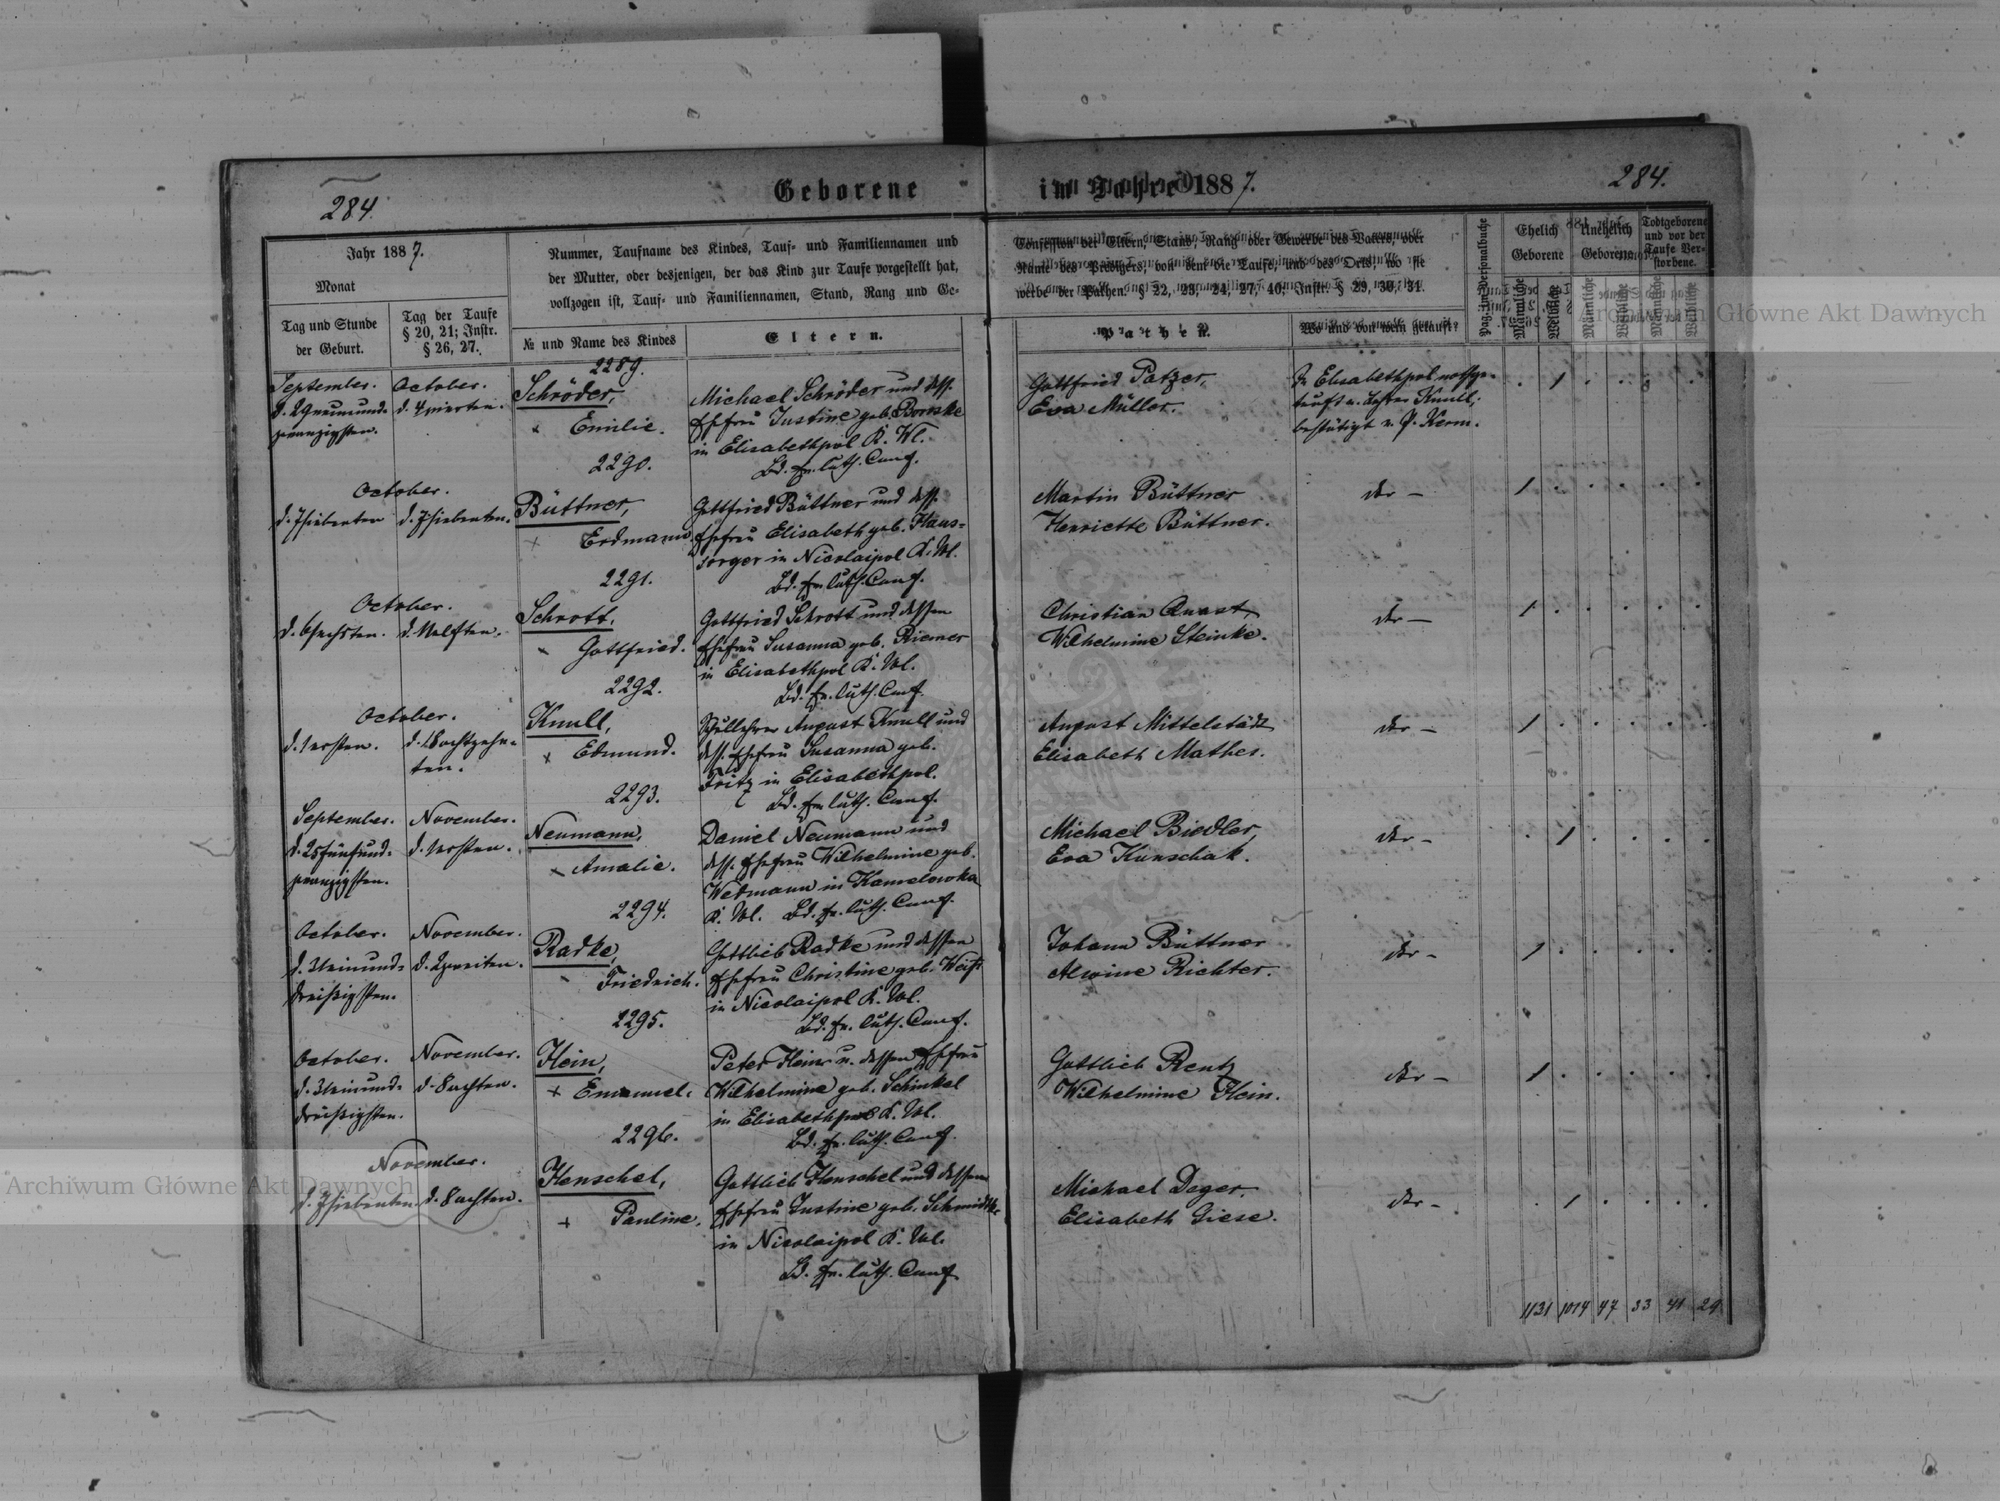 284.
Geborene
im Jahre 1887.
284.
Jahr 1887.
Monat
Tag und Stunde der Geburt.
Tag der Taufe § 20, 21; Instr. § 26, 27.
Nummer, Taufname des Kindes, Tauf- und Familiennamen und
der Mutter, oder desjenigen, der das Kind zur Taufe vorgestellt hat,
vollzogen ist, Tauf- und Familiennamen, Stand, Rang und Ge-
№ und Name des Kindes
Eltern.
Confession der Eltern, Stand, Rang oder Gewerbe des Vaters, oder
Name des Predigers, von dem die Taufe, und des Orts, wo sie
werbe der Pathen. § 22, 23, 24, 27, 40; Instr. § 29, 30, 31.
Pathen.
Wo und von wem getauft?
Pag. im Personalbuche
Ehelich Geborene
Unehelich Geborene
Todtgeborene und vor der Taufe Verstorbene.
Männliche
Weibliche
Männliche
Weibliche
Männliche
Weibliche
2289.
September.
d. 29 neunund-
zwanzigsten.
October.
d. 4 vierten.
Schröder,
Emilie.
Michael Schröder und dess.
Ehefrau Justine geb.
in Elisabethpol K. Wl.
Bd. ev. luth. Conf.
Gottfried Patzer,
Eva Müller.
In Elisabethpol nothge-
tauft v. Lehrer Knull;
bestätigt v. P. Kerm.
1
2290.
October.
d. 7 siebenten
d. 7 siebenten.
Büttner,
Erdmann
Gottfried Büttner und dess.
Ehefrau Elisabeth geb. Haus-
sorger in Nicolaipol K. Wl.
Bd. ev. luth. Conf.
Martin Büttner
Henriette Büttner.
1
2291.
October.
d. 6 sechsten.
d. 11 elften.
Schrott,
Gottfried.
Gottfried Schrott und dessen
Ehefrau Susanna geb. Riemer
in Elisabethpol K. Wl.
Bd. ev. luth. Conf.
Christian Quast,
Wilhelmine Steinke.
1
2292.
October.
d. 1 ersten.
d. 18 achtzehn-
ten.
Knull,
Edmund.
Schullehrer August Knull und
dess. Ehefrau Susanna geb.
Fritz in Elisabethpol.
Bd. ev. luth. Conf.
August Mittelstädt
Elisabeth Mathes.
1
2293.
September.
d. 25 fünfund-
zwanzigsten.
November.
d. 1 ersten.
Neumann,
Amalie.
Daniel Neumann und
dess. Ehefrau Wilhelmine geb.
Wedmann in Kamelowka
K. Wl. Bd. ev. luth. Conf.
Michael Biedler,
Eva Kunschak.
1
2294.
October.
d. 31 einund-
dreißigsten.
November.
d. 2 zweiten.
Radke,
Friedrich.
Gottlieb Radke und dessen
Ehefrau Christine geb. Weiß
in Nicolaipol K. Wl.
Bd. ev. luth. Conf.
Johann Büttner
Alwine Richter.
1
2295.
October.
d. 31 einund-
dreißigsten.
November.
d. 8 achten.
Hein,
Emanuel.
Peter Hein u. dessen Ehefrau
Wilhelmine geb. Schinkel
in Elisabethpol K. Wl.
Bd. ev. luth. Conf.
Gottlieb Rentz
Wilhelmine Hein.
1
2296.
November.
d. 7 siebenten.
d. 8 achten.
Henschel,
Pauline.
Gottlieb Henschel und dessen
Ehefrau Justine geb. Schmidtke
in Nicolaipol K. Wl.
Bd. ev. luth. Conf.
Michael Deger,
Elisabeth Giese.
1
1131 1074 47 33 41 29
Archiwum Główne Akt Dawnych
Archiwum Główne Akt Dawnych